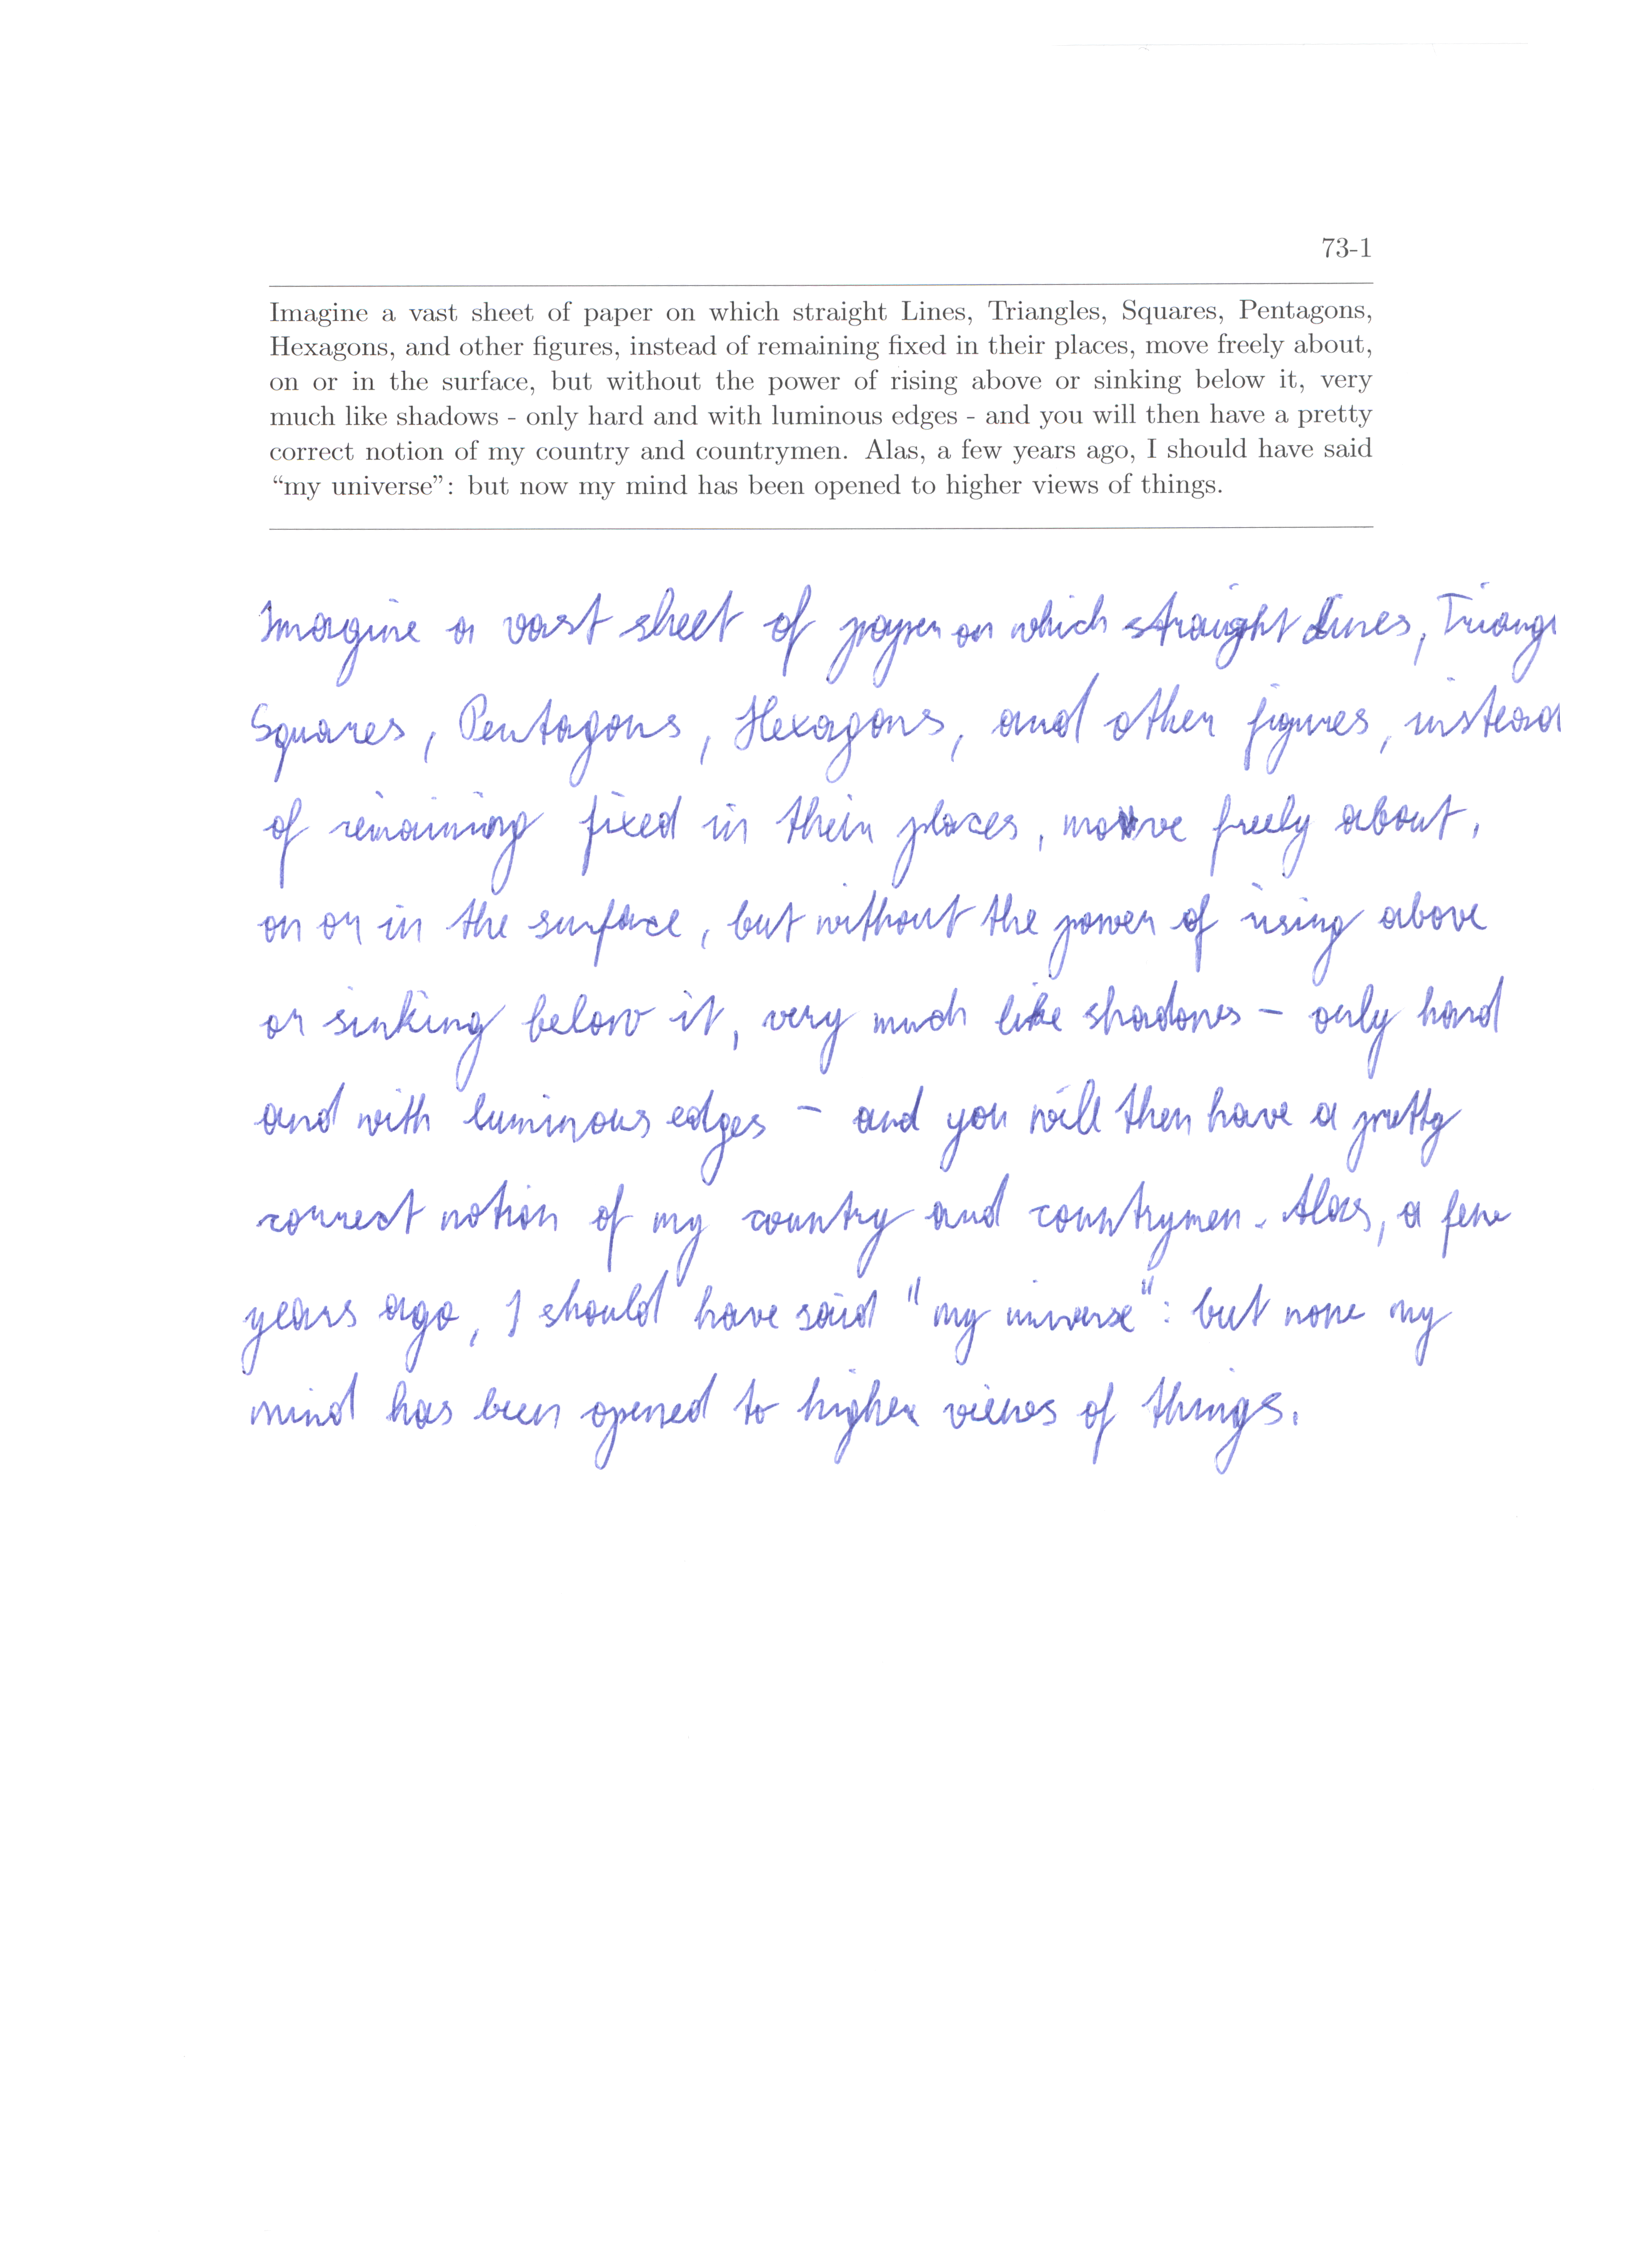 73-1
Imagine a vast sheet of paper on which straight Lines, Triangles, Squares, Pentagons,
Hexagons, and other figures, instead of remaining fixed in their places, move freely about,
on or in the surface, but without the power of rising above or sinking below it, very
much like shadows - only hard and with luminous edges - and you will then have a pretty
correct notion of my country and countrymen. Alas, a few years ago, I should have said
“my universe”: but now my mind has been opened to higher views of things.
Imagine a vast sheet of paper on which straight Lines, Triang
Squares, Pentagons, Hexagons, and other figures, instead
of remaining fixed in their places, move freely about,
on or in the surface, but without the power of rising above
or sinking below it, very much like shadows - only hard
and with luminous edges - and you will then have a pretty
correct notion of my country and countrymen. Alas, a few
years ago, I should have said "my universe": but now my
mind has been opened to higher views of things.